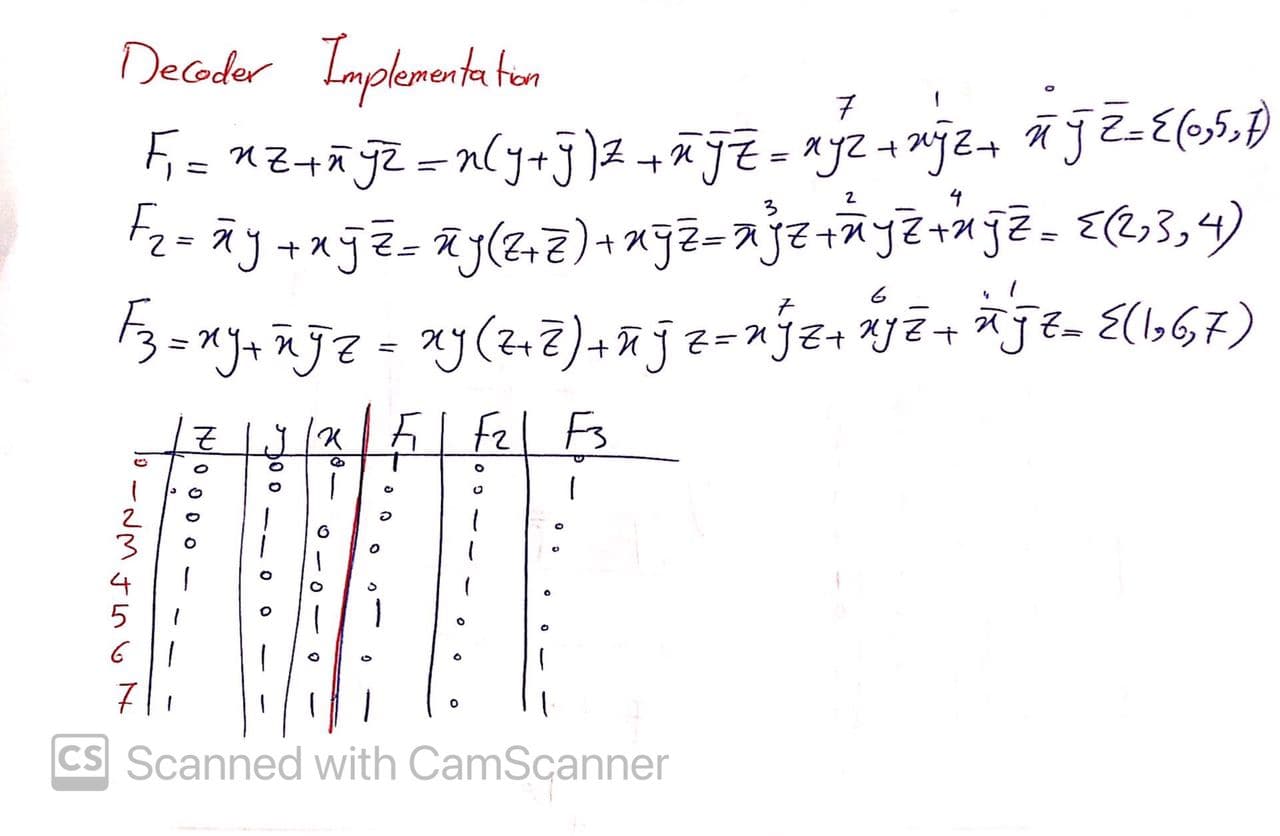 Decoder Implementation
7 1 0
F₁ = xz + x̄ȳz̄ = x(y+ȳ)z + x̄ȳz̄ = xyz + xȳz + x̄ȳz̄ = Σ(0,5,7)
3 2 4
F₂ = x̄y + xȳz̄ = x̄y(z+z̄) + xȳz̄ = x̄yz + x̄yz̄ + xȳz̄ = Σ(2,3,4)
7 6 1
F₃ = xy + x̄ȳz = xy(z+z̄) + x̄ȳz = xyz + xyz̄ + x̄ȳz = Σ(1,6,7)
z y x F₁ F₂ F₃
0 0 0 0 1 0 0
1 0 0 1 0 0 1
2 0 1 0 0 1 0
3 0 1 1 0 1 0
4 1 0 0 0 1 0
5 1 0 1 1 0 0
6 1 1 0 0 0 1
7 1 1 1 1 0 1
CS Scanned with CamScanner